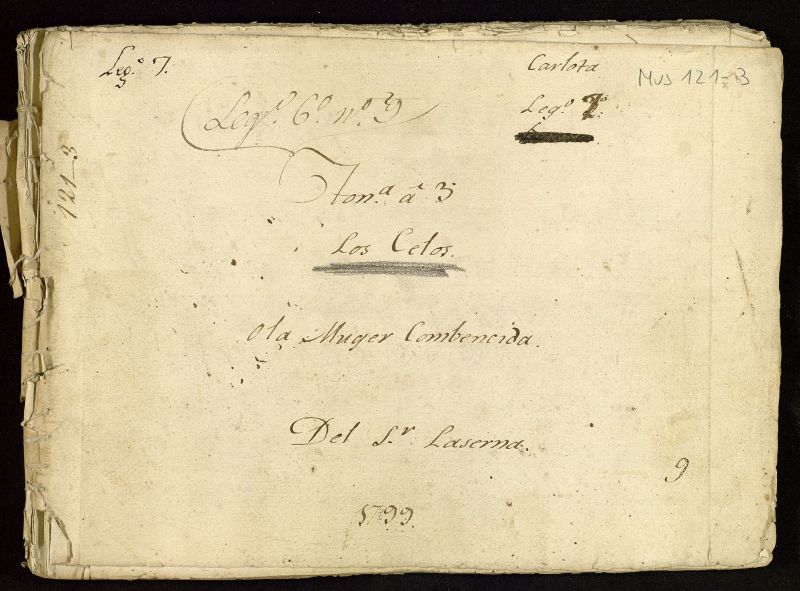 Leg.º 7.
Carlota
Mus 121-3
Leg.º 6º nº 3
Leg.º 7º
121-3
Ton.ª â 3
Los Celos.
O la Muger Combencida.
Del S.r Laserna.
9
1799.